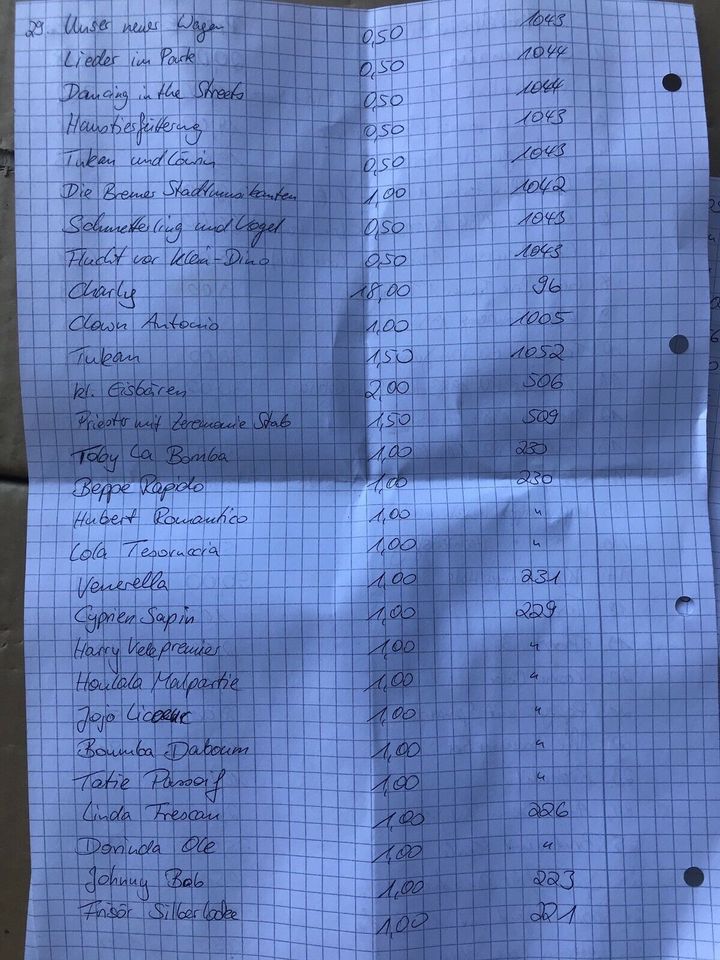 29. Unser neuer Wagen 0,50 1043
Lieder im Park 0,50 1044
Dancing in the Streets 0,50 1044
Haustierfütterung 0,50 1043
Tukan und Löwin 0,50 1043
Die Bremer Stadtmusikanten 1,00 1042
Schmetterling und Vogel 0,50 1043
Flucht vor Klein-Dino 0,50 1043
Charly 18,00 96
Clown Antonio 1,00 1005
Tukan 1,50 1052
kl. Eisbären 2,00 506
Priester mit Zeremonie Stab 1,50 509
Toby La Bomba 1,00 230
Beppe Rapido 1,00 230
Hubert Romantico 1,00 "
Lola Tesoruccia 1,00 "
Venerella 1,00 231
Cyprien Sapin 1,00 229
Harry Velepremier 1,00 "
Houlala Malpartie 1,00 "
Jojo 1,00 "
Boumba Daboum 1,00 "
Tatie 1,00 "
Linda Frescan 1,00 226
Dorinda Ole 1,00 "
Johnny Bob 1,00 223
Frisör Silberlocke 1,00 221